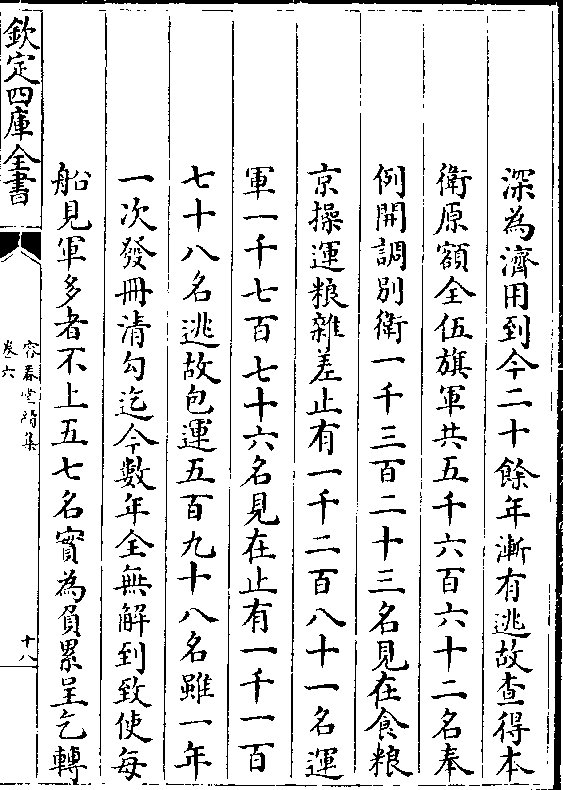 深為濟用到今二十餘年漸有逃故查得本
衛原額全伍旗軍共五千六百六十二名奉
例開調別衛一千三百二十三名見在食粮
京操運粮雜差止有一千二百八十一名運
軍一千七百七十六名見在止有一千一百
七十八名逃故包運五百九十八名雖一年
一次發冊清勾迄今數年全無解到致使每
船見軍多者不上五七名實為負累呈乞轉
欽定四庫全書
容春堂續集
卷六
十八